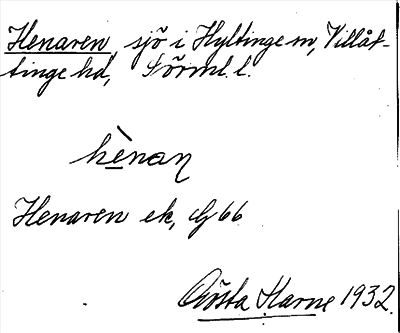 Henaren, sjö i Hyltinge sn, Villåt-
tinge hd, Sörml. l.
hènan
Henaren ek, G 66
Gösta Karne 1932.